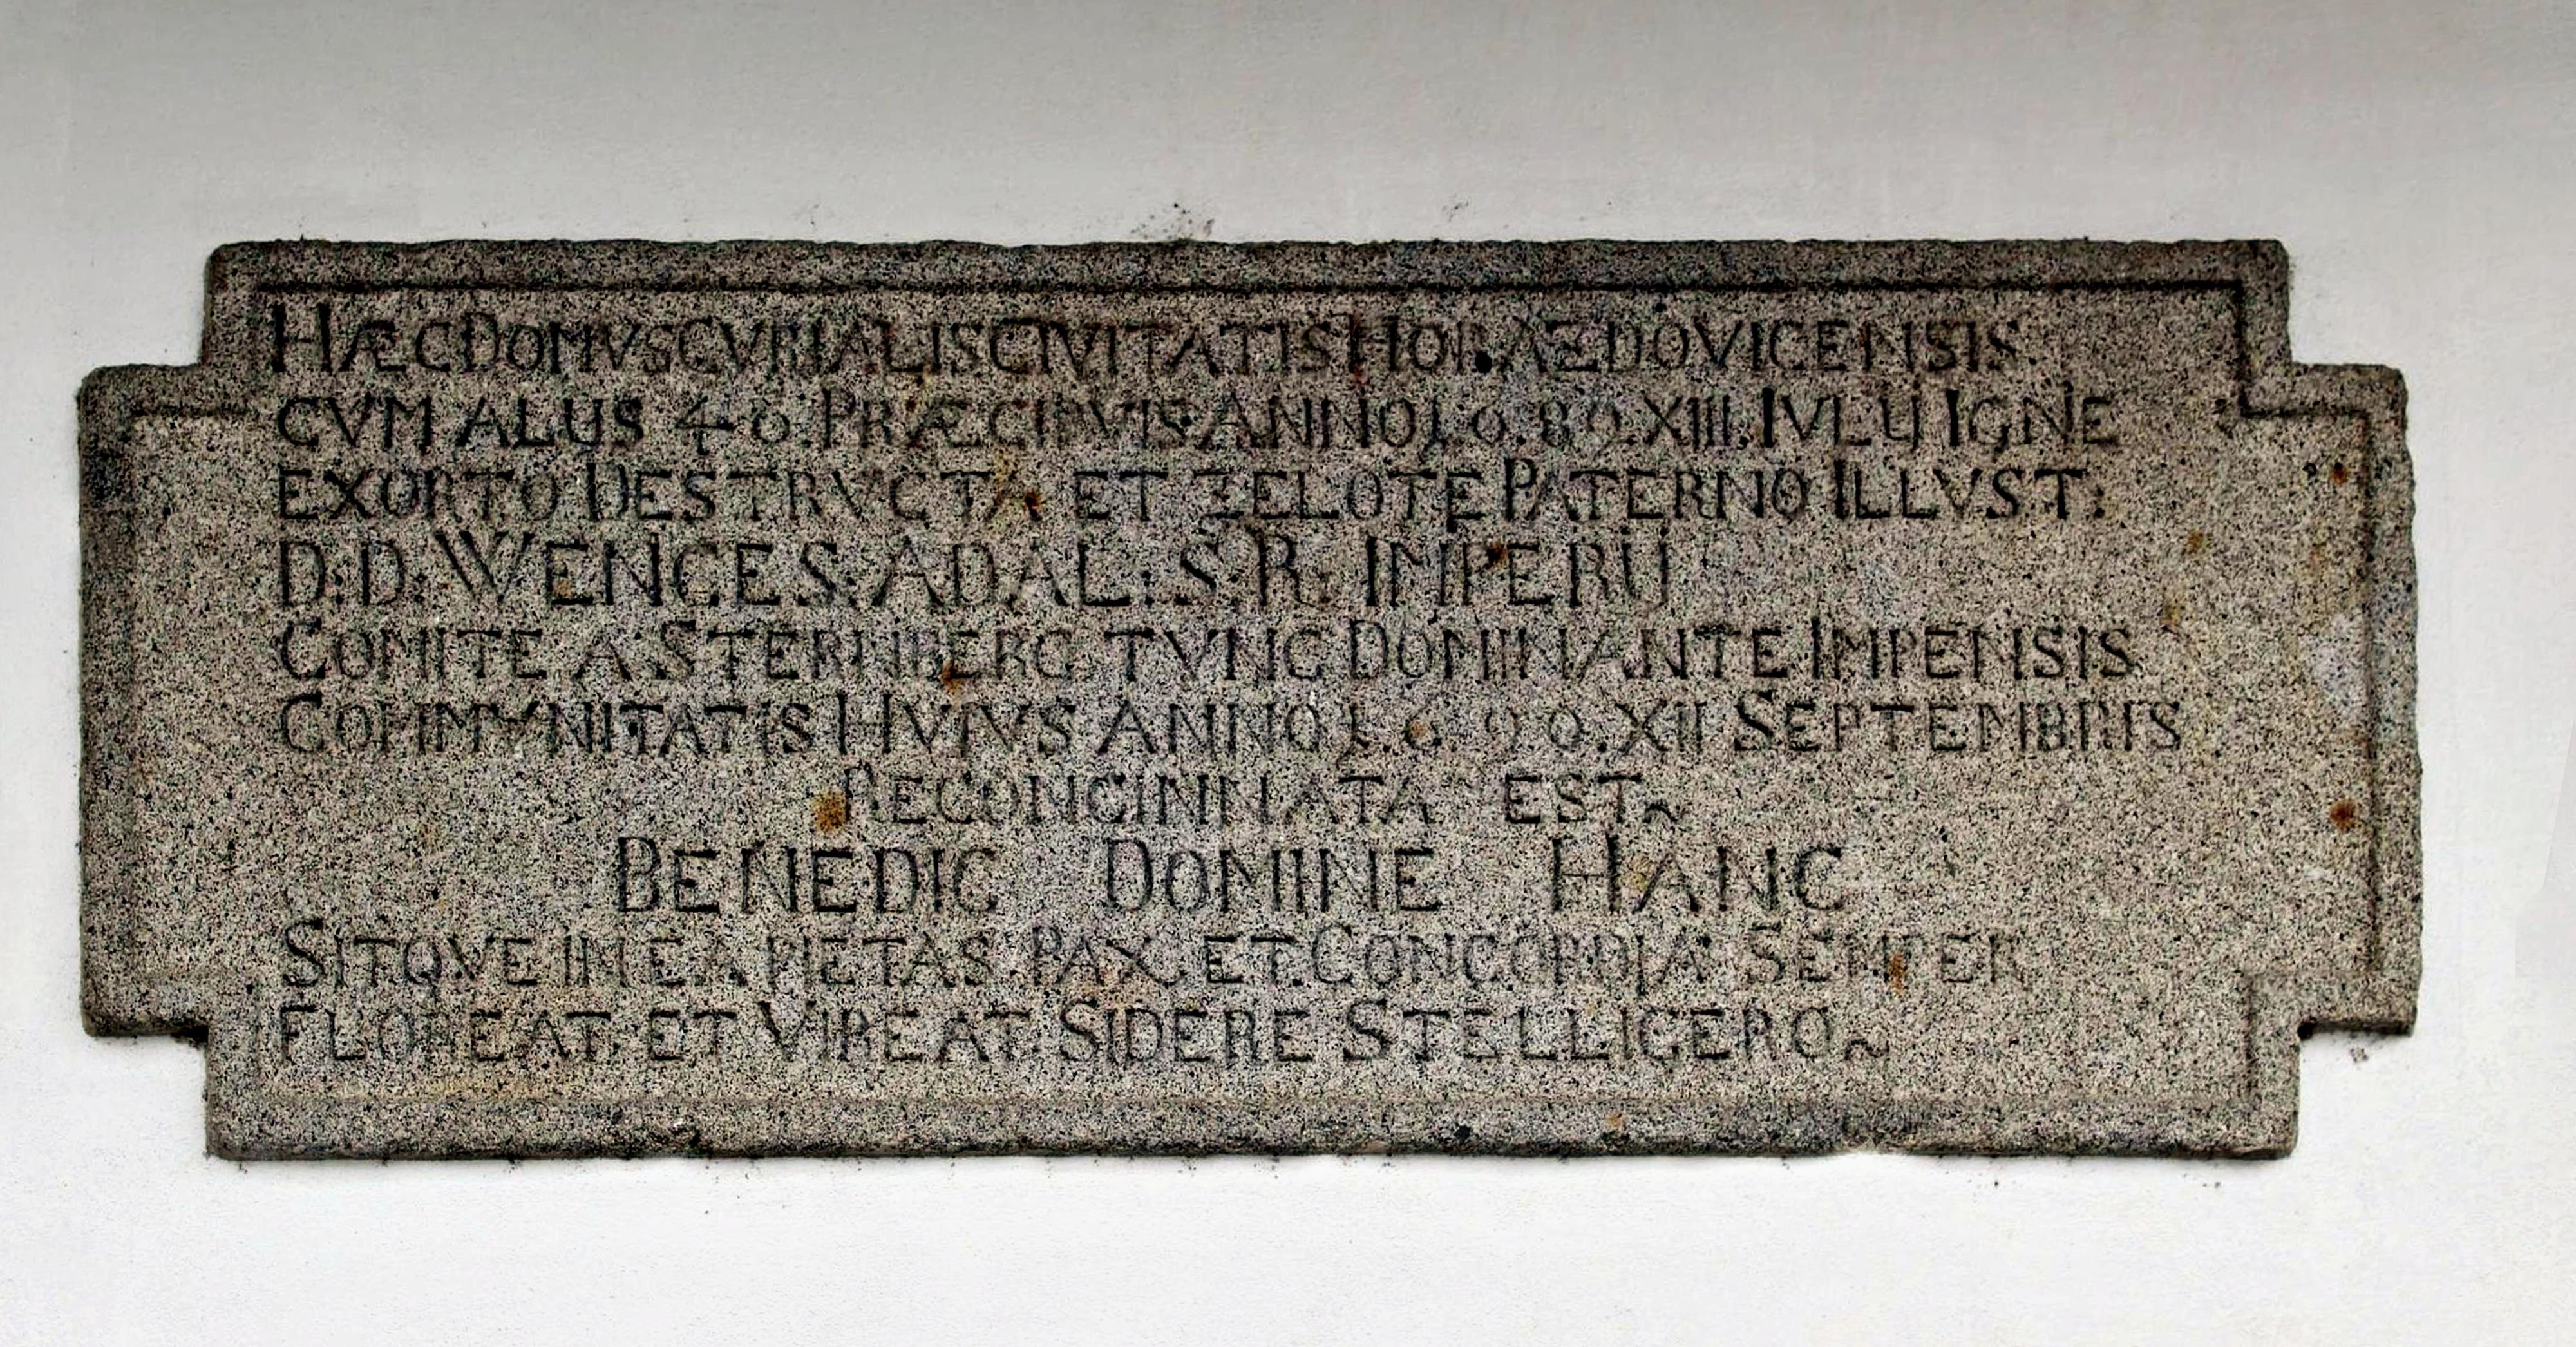 HÆC DOMVS CVRIALIS CIVITATIS HORAZDOVICENSIS.
CVM ALIJS 40. PRÆCIPVIS. ANNO 1.6.89. XIII. IVLIJ IGNE
EXORTO DESTRVCTA ET ZELOTE PATERNO ILLVST:
D:D: WENCES: ADAL: S: R: IMPERIJ
COMITE A STERNBERG. TVNC DOMINANTE IMPENSIS
COMMVNITATIS HVIVS ANNO 1.6.90. XII SEPTEMBRIS
RECONCINNATA EST~
BENEDIC DOMINE HANC
SITQVE IN EA PIETAS PAX. ET. CONCORDIA SEMPER
FLOREAT. ET VIREAT SIDERE STELLIGERO~